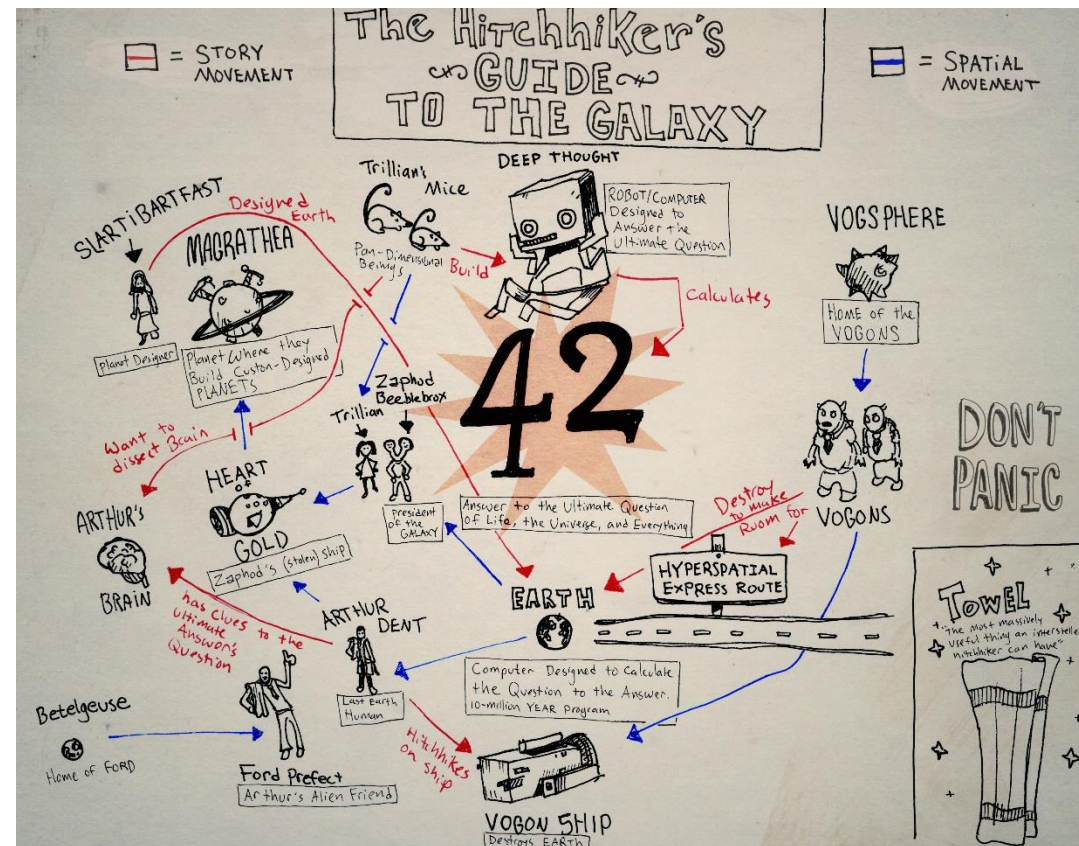 The Hitchhiker's
GUIDE
TO THE GALAXY
= STORY
MOVEMENT
= SPATIAL
MOVEMENT
SLARTIBARTFAST
Planet Designer
Designed
Earth
MAGRATHEA
Planet Where they
Build Custom-Designed
PLANETS
Trillian's
Mice
Pan-Dimensional
Beings
Build
DEEP THOUGHT
ROBOT/COMPUTER
Designed to
Answer the
Ultimate Question
Calculates
42
Answer to the Ultimate Question
of Life, the Universe, and Everything
VOGSPHERE
HOME of the
VOGONS
VOGONS
DON'T
PANIC
Destroy
to make
Room for
HYPERSPATIAL
EXPRESS ROUTE
Zaphod
Beeblebrox
Trillian
President
of the
GALAXY
Want to
dissect Brain
HEART
of
GOLD
Zaphod's (stolen) ship
ARTHUR'S
BRAIN
has clues to the
ultimate
Answer's
Question
ARTHUR
DENT
Last Earth
Human
EARTH
Computer Designed to Calculate
the Question to the Answer.
10-million YEAR program
Betelgeuse
Home of FORD
Ford Prefect
Arthur's Alien Friend
Hitchhikes
on ship
VOGON SHIP
Destroys EARTH
TOWEL
"the most massively
useful thing an interstellar
hitchhiker can have"